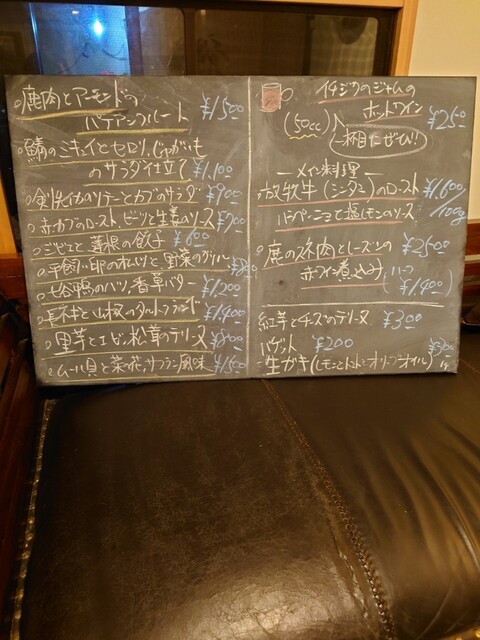 鹿肉とアーモンドの
パテアンクルート ¥1,500
鯖のミキュイとセロリ、じゃがいも
のサラダ仕立て ¥1,100
剣先イカのソテーとカブのサラダ ¥900
赤カブのロースト ビーツと生姜のソース ¥700
ジビエと蓮根の餃子 ¥600
平飼い卵のオムレツと野菜のグリル
七谷鴨のハツ、香草バター ¥1,200
長ネギと のタルトフランベ ¥1,400
里芋とエビ、松茸のテリーヌ ¥800
ムール貝と菜花、サフラン風味 ¥1,500
イチジクのジャムの
ホットワイン ¥250
(50cc)
一杯目にぜひ!!
ーメイン料理ー
放牧牛(シンタマ)のロースト ¥1,600
ハラペーニョと塩レモンのソース /100g
鹿のスネ肉とレーズンの ¥2500
赤ワイン煮込み (ハーフ
¥1,400)
紅芋とチーズのテリーヌ ¥300
バゲット ¥200
生ガキ(レモンとトマトとオリーブオイル)